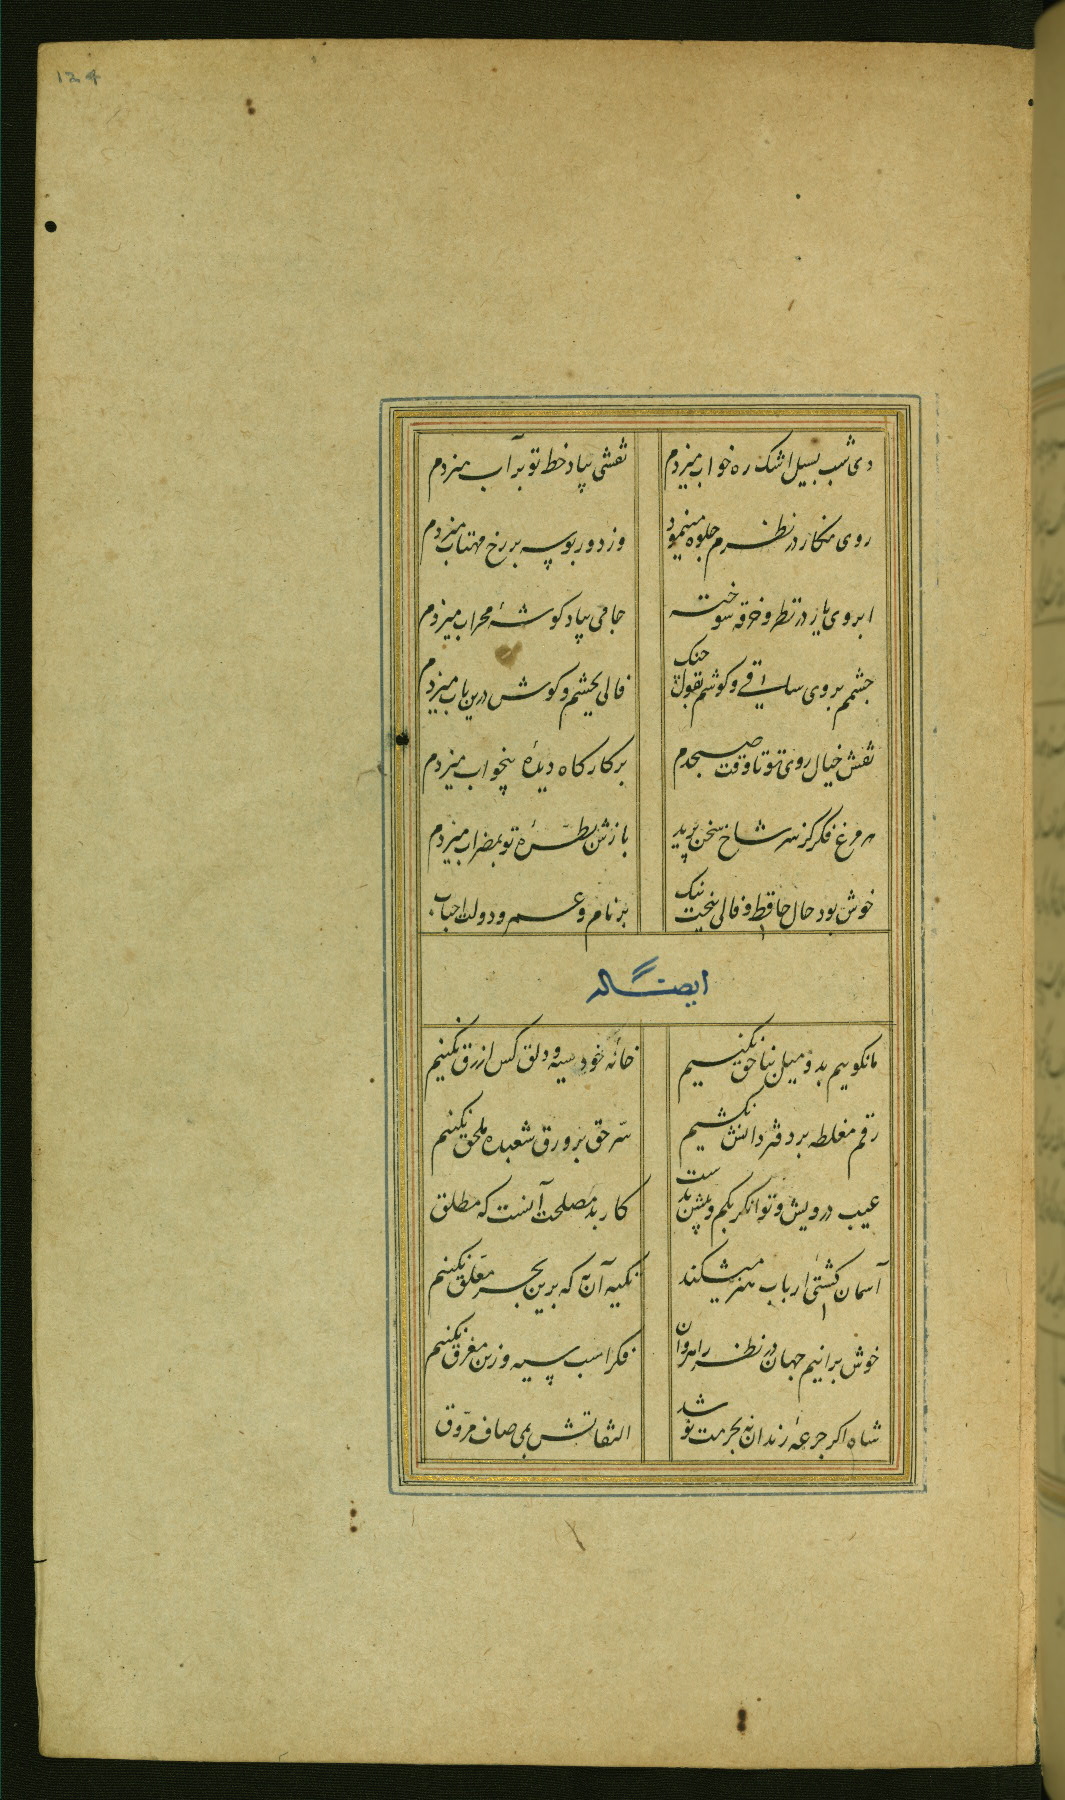 ۱۲۴
دی شب بسیل اشک ره خواب میزدم
نقشی بیاد خط تو بر آب میزدم
روی نکار در نظرم جلوه مینمود
وز دور بوسه بر رخ مهتاب میزدم
ابروی یار در نظر و خرقه سوخته
جامی بیاد کوشهٔ محراب میزدم
چشمم بروی ساقی و کوشم بقول چنک
فالی بچشم و کوش درین باب میزدم
نقش خیال روی تو تا وقت صبحدم
بر کارکاه دیدهٔ بیخواب میزدم
هر مرغ فکر کز سر شاخ سخن پرید
بازش بطرهٔ تو بمضراب میزدم
خوش بود حال حافظ و فالی ببخت نیک
بر نام و عمر و دولت احباب
ایضاً له
ما نکوییم بد و میل بناحق نکنیم
خانه خود سیه و دلق کس ازرق نکنیم
رقم مغلطه بر دفتر دانش نکشیم
سر حق بر ورق شعبده ملحق نکنیم
عیب درویش و توانکر بکم و بیش بد ست
کار بد مصلحت آنست که مطلق
آسمان کشتی ارباب هنر میشکند
تکیه آن به که برین بحر معلق نکنیم
خوش برانیم جهان در نظر راهروان
فکر اسب سیه و زین مغرق نکنیم
شاه اکر جرعهٔ رندان نه بحرمت نوشد
التفاتش بمی صاف مروق